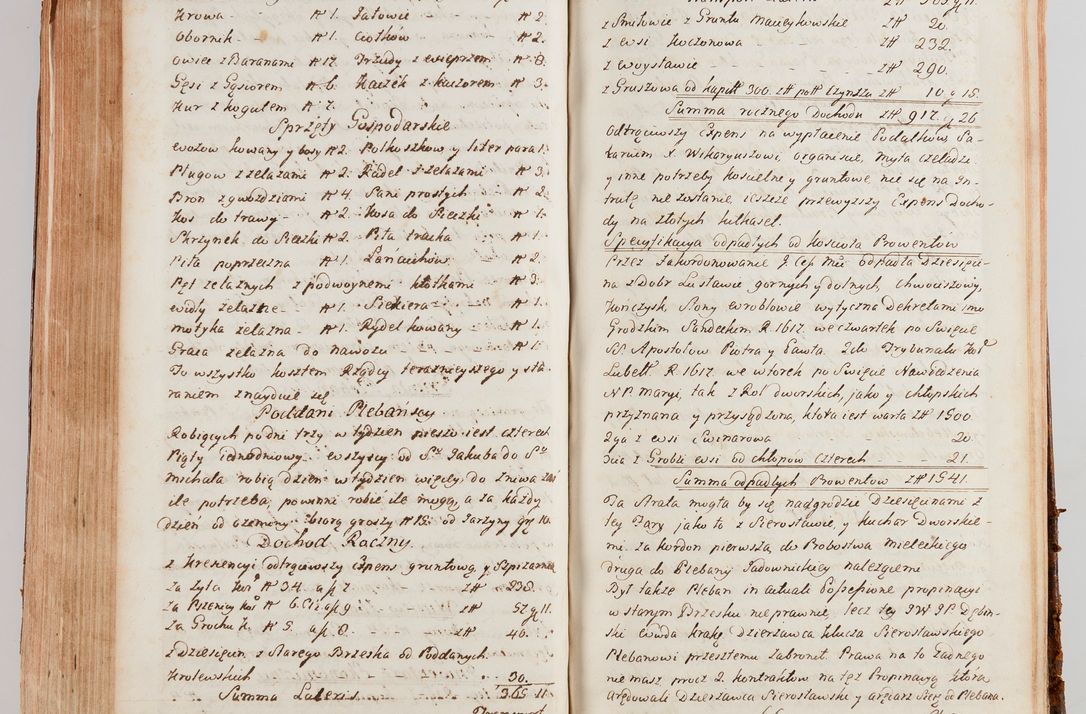 Krowa - № 1. Jałowic № 2.
Obornik - № 1. Ciołków № 2.
Owiec z Baranami № 17. Trzody z wieprzem № 8.
Gęsi z Gąsiorem № 6. Kaczek z kaczorem № 3.
Kur z kogutem № 7.
Sprzęty Gospodarskie
Wozow kowany y bosy № 2. Połkoszkow y liter para 1.
Pługow z żelazami № 2. Radeł z żelazami № 3.
Bron z gwoździami № 4. Sani prostych № 2.
Kos do trawy - № 2. Kosa do Sieczki № 1.
Skrzynek do Sieczki № 2. Piła tracka № 1.
Piła poprzeczna № 1. Łancuchów № 2.
Pęt żelaznych z podwoynemi kłotkami № 3.
Widły żelazne - № 1. Siekiera - № 1.
Motyka żelazna - № 1. Rydel kowany - № 1.
Graca żelazna do nawozu № 1.
To wszystko kosztem Rządcy teraznieyszego y sta-
raniem znayduie się
Poddani Plebańscy
Robiących po dni trzy w tydzien pieszo iest czterech
Piąty iednodniowy wszyscy od S. Jakuba do S.
Michała robią dzien w tydzien więcey, do żniwa zaś
ile potrzeba, powinni robić ile mogą, a za każdy
dzień od oziminy biorą groszy № 15. od Jarzyny gr 10.
Dochod Roczny.
z Krescencyi odtrąciwszy Expens gruntową y Spiżarnią
Za Żyta kor. № 34. a fl. 7. zł 238.
Za Pszenicy kor. № 6. a fl. 9. zł 57 g 11.
Za Grochu k. № 5. a fl. 8. - zł 40.
z Dziesięcin z Starego Brzeska od Poddanych
Krolewskich 30.
Summa Lateris 365. 11.
z Smiłowic z Gruntu Macieykowskie zł 20.
z wsi Koczonowa - zł 232.
z Woysławic - - - zł 290.
z Gruszowa od kapit. 300. zł pol. Czynszu zł 10. g 15.
Summa rocznego Dochodu zł 917. g 26
Odtrąciwszy Expens na wypłacenie Podatkow Sa-
larium X. Wikaryuszowi, organiscie, myta czeladzi
y inne potrzeby kościelne y gruntowe nie się na In-
tratę nie zostanie, ieszcze przewyższy Expens Docho-
dy na złotych kilkaset.
Specyfikacya odpadłych od kościoła Prowentow
Przez Zakordonowanie J. Ces. Mći odpadła Dziesięci-
na z Dobr Lusławic gornych y dolnych, Chwociszowy,
Kończysk, Stony, Wroblowic wytyczna Dekretami 1mo
Grodzkim Sandeckim R. 1617. we czwartek po Swięcie
SS. Apostołow Piotra y Pawła. 2do Trybunału Kor.
Lubell. R. 1617. we wtorek po Swięcie Nawiedzenia
N.P. Maryi, tak z Roł dworskich, jako y chłopskich
przyznana y przysądzona, ktora iest warta zł 1500.
2ga z wsi Swinarowa - - 20.
3cia z Grobli wsi od chłopow czterech - - 21.
Summa odpadłych Prowentow zł 1541.
Ta Strata mogła by się nadgrodzić Dziesięcinami z
tey Fary jako to z Sierosławic, y Kuchar Dworskie-
mi za kordon pierwsza do Probostwa Mieleckiego
druga do Plebany Jadownickiey należącemi
Był także Pleban in actuali Possessione propinacyi
w starym Brzesku nie prawnie, lecz tey JW JP. Dębin-
ski Ewoda Krakę Dzierżawca Klucza Sierosławskiego
Plebanowi przeszłemu zabronił. Prawa na to żadnego
nie masz procz 2. kontraktow na tęż Propinacyą ktorą
aręndowali Dzierżawca Sierosławski y aręndarz Jego od Plebana.